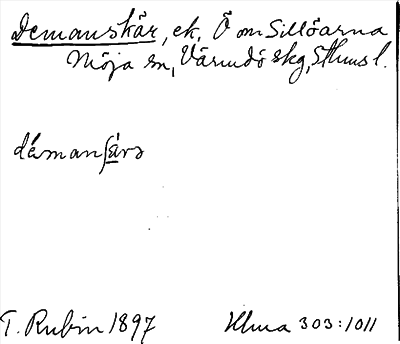 Demanskär, ek. Ö om Sillöarna
Möja sn, Värmdö skg, Sthms l.
démanʃärə
T. Rubin 1897 Ulma 303:1011